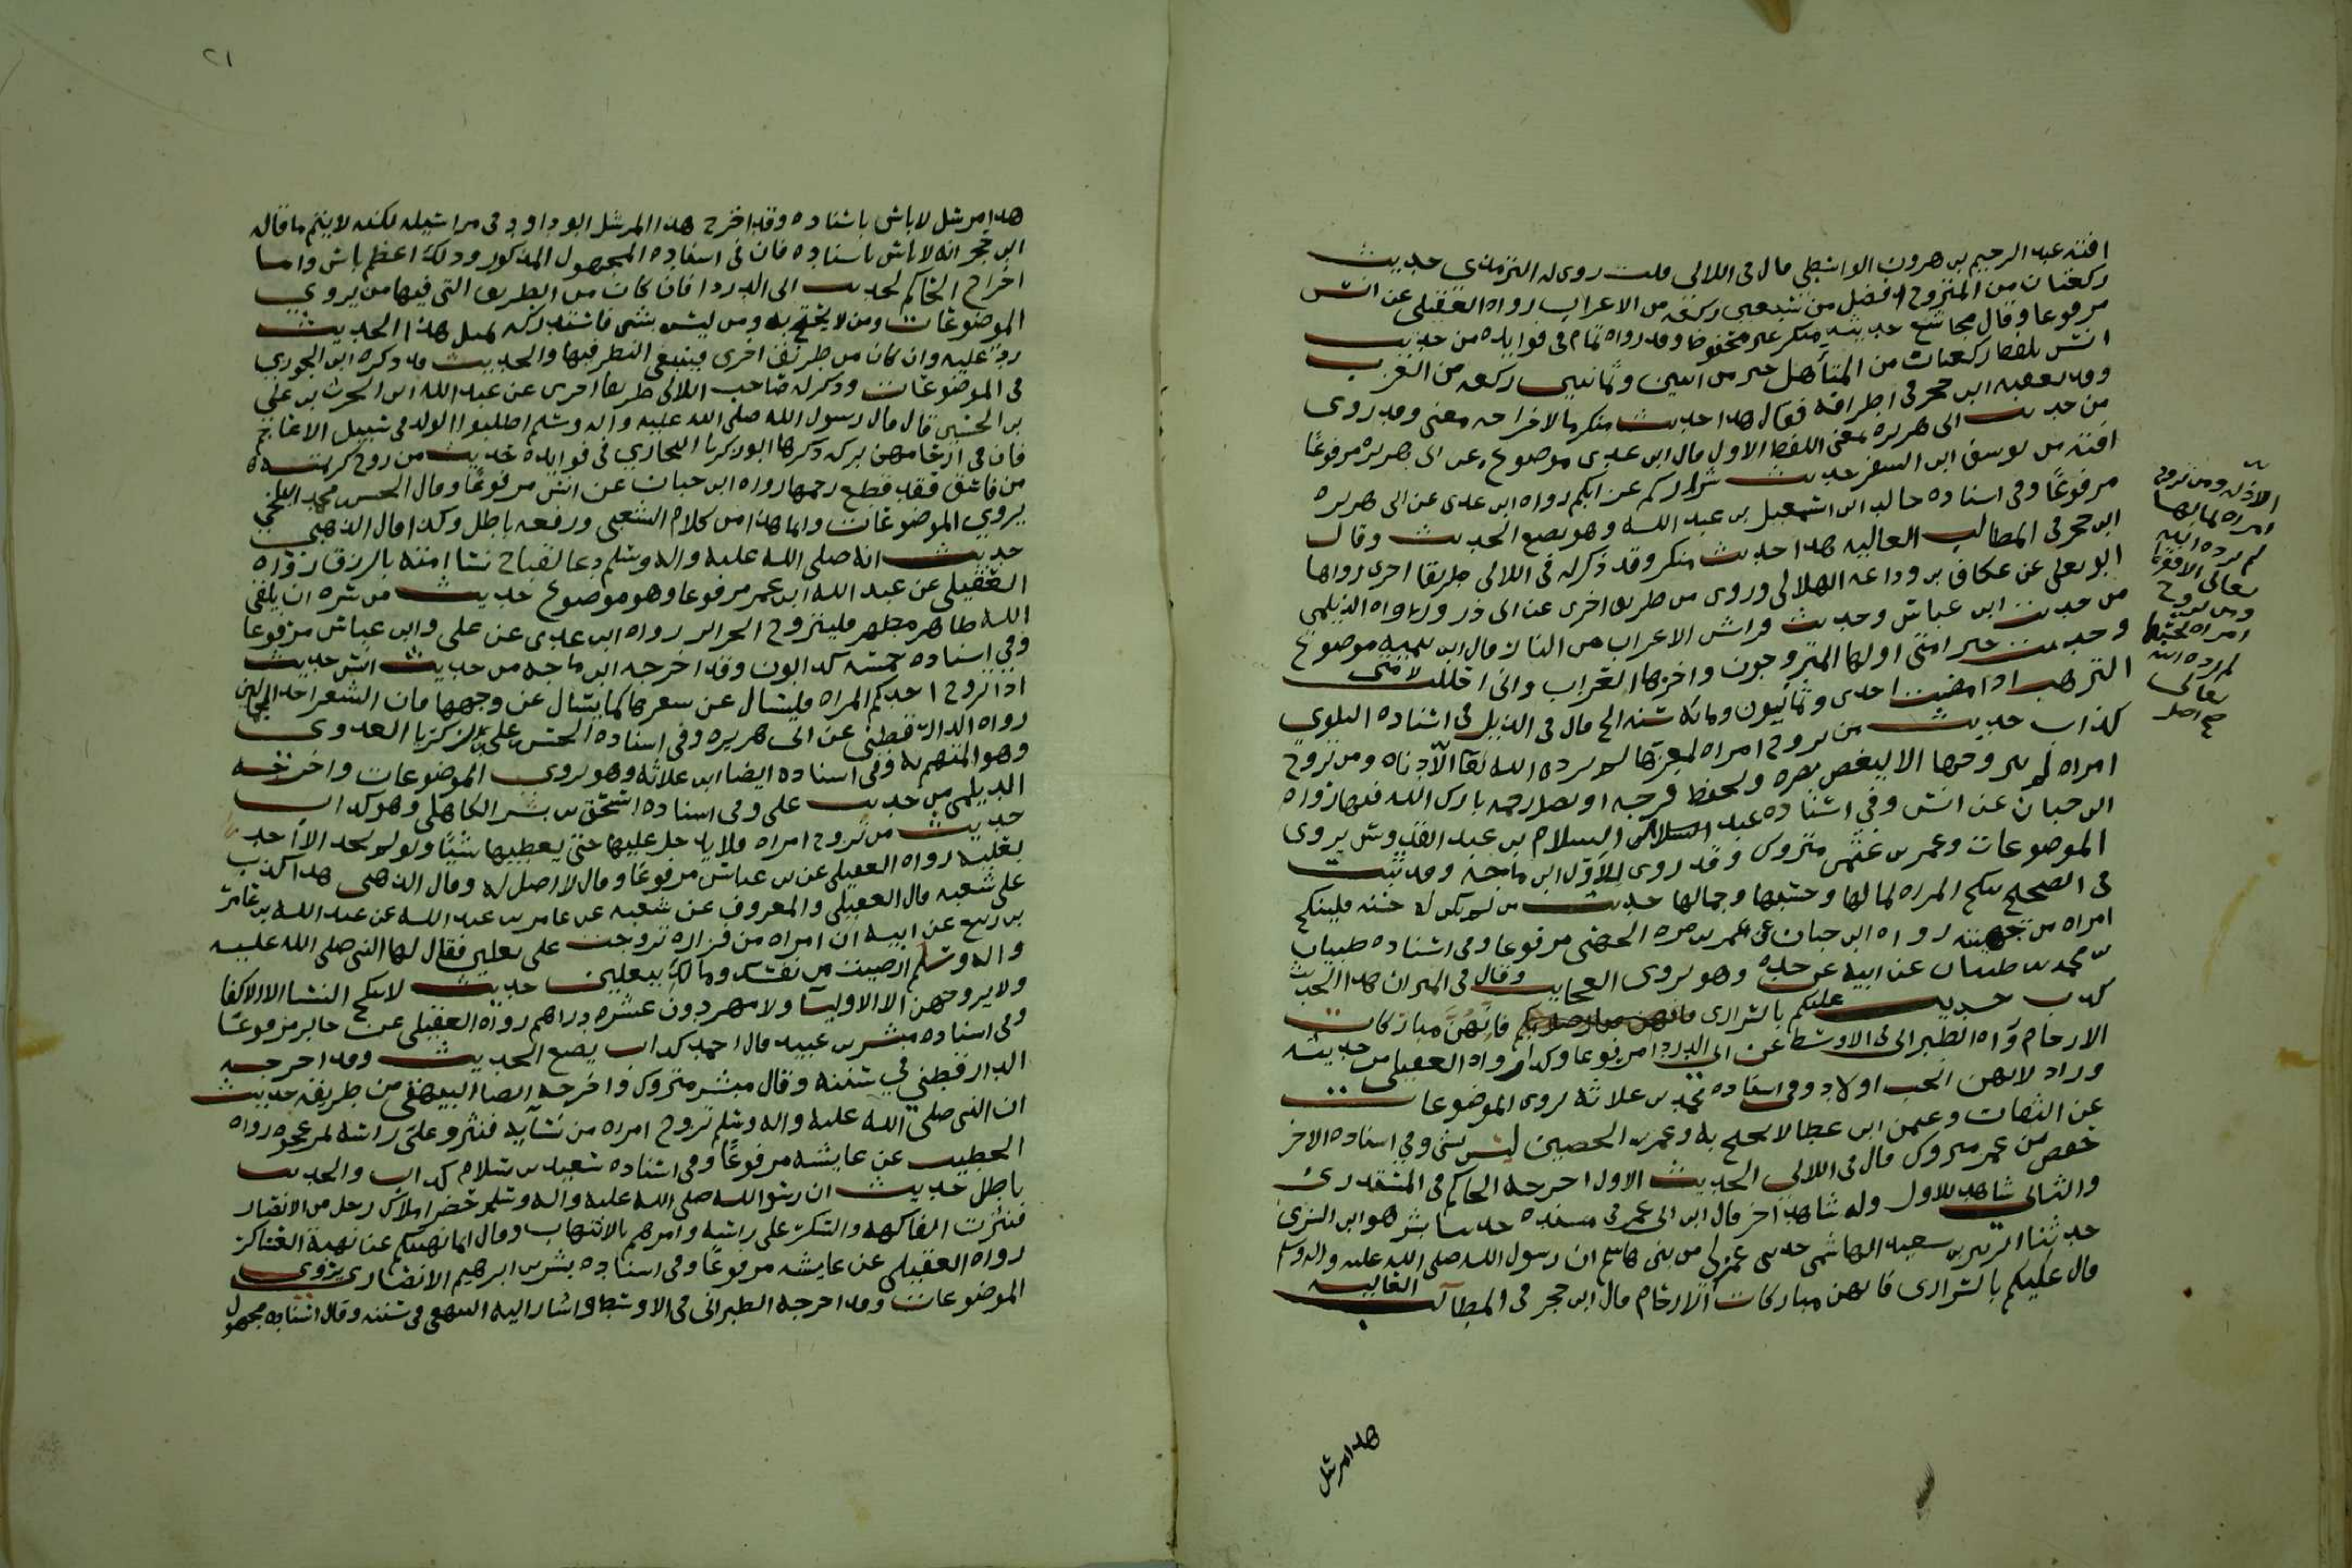 افته عبد الرحيم بن هرون الواسطي قال في اللالى قلت روى له الترمذي حديث
ركعتان من المتزوج افضل من سبعين ركعة من الاعزب رواه العقيلي عن انس
مرفوعا وقال مجاشع حديثه منكر غير محفوظ وقد رواه تمام في فوايده من حديث
انس بلفظ ركعتان من المتأهل خير من اثنين وثمانين ركعه من العزب
وقد تعقبه ابن حجر في اطرافه فقال هذا حديث منكر ما لاخراجه معنى وقد روى
من حديث ابى هريره بمعنى اللفظ الاول قال ابن عدي موضوع
افته من يوسف ابن السفر حديث شراركم عزابكم رواه ابن عدي عن ابى هريره
مرفوعًا وفي اسناده خالد ابن اسمعيل بن عبد الله وهو يضع الحديث وقال
ابن حجر في المطالب العاليه هذا حديث منكر وقد ذكر له في اللالى طريقا اخرى رواها
ابو يعلى عن عكاف بن وداعه الهلالي وروى من طريق اخرى عن ابى ذر ورواه الديلمي
من حديث ابن عباس وحديث فراش الاعزاب من النار قال ابن تيميه موضوع
وحديث خير امتي اولها المتزوجون واخرها العزاب واني احللت لامتى
الترهب اذا مضت احدى وثمانون ومائة سنه الخ قال في الذيل في اسناده البلوي
كذاب حديث من تزوج امراه لعزها لم يرده الله تعا الّا ذلا ومن تزوج
امراه لم يتزوجها الا ليغض بصره ويحفظ فرجه او يصل رحمه بارك الله فيها رواه
ابن حبان عن انس وفي اسناده عبد السلام بن عبد القدوس يروى
الموضوعات وعمر بن عثمن متروك وقد روى الاول ابن ماجه وقد ثبت
في الصحيح تنكح المراه لمالها وحسبها وجمالها حديث من لم يكن له حسنه فلينكح
امراه من جهينه رواه ابن حبان عن عمر بن مره الجهني مرفوعا وفي اسناده طبيان
بن محمد بن طبيان عن ابيه عن جده وهو يروى العجايب وقال في الميزان هذا الحديث
كذب حديث عليكم بالسراري فانهن مباركات
الارحام رواه الطبراني في الاوسط عن ابى الدردا مرفوعا وكذا رواه العقيلي من حديثه
وزاد لانهن انجب اولادا وفي اسناده محمد بن علاثه يروى الموضوعات
عن الثقات وعثمن ابن عطا لا يحتج به وعمر بن الحصين ليس بشي وفي اسناده الاخر
حفص بن عمر متروك قال في اللالى الحديث الاول اخرجه الحاكم في المستدرك
والثاني شاهد للاول وله شاهد اخر قال ابن ابى عمر في مسنده حدثنا بشر هو ابن السري
حدثنا الزبير بن سعيد الهاشمي حدثني عم لي من بني هاشم ان رسول الله صلى الله عليه واله وسلم
قال عليكم بالسراري فانهن مباركات الارحام قال ابن حجر في المطالب العاليه
هذا مرسل
الا ذله ومن تزوج
امراه لمالها
لم يرده الله
تعالى الا فقرا
ومن تزوج
امراه لحسبها
لم يرده الله
تعالى
صح اصل
٢١
هذا مرسل لا باس باسناده وقد اخرج هذا المرسل ابو داود في مراسيله لكنه لا يتم ما قاله
ابن حجر انه لا باس باسناده فان في اسناده المجهول المذكور وذلك اعظم باس واما
اخراج الحاكم لحديث ابى الدردا فان كان من الطريق التي فيها من يروي
الموضوعات ومن لا يحتج به ومن ليس بشي فاستدراكه لمثل هذا الحديث
رد عليه وان كان من طريق اخرى فينبغي النظر فيها والحديث قد ذكره ابن الجوزي
في الموضوعات وذكر له صاحب اللالى طريقا اخرى عن عبد الله ابن الحرث بن علي
بن الحسين قال قال رسول الله صلى الله عليه واله وسلم اطلبوا الولد في سبيل الاعاجم
فان في ارحامهن بركه ذكرها ابو زكريا البخاري في فوايده حديث من زوج كريمته
من فاسق فقد قطع رحمها رواه ابن حبان عن انس مرفوعًا وقال الحسن محمد البلخي
يروي الموضوعات وانما هذا من كلام الشعبي ورفعه باطل وكذا قال الذهبي
حديث انه صلى الله عليه واله وسلم دعا لقباح نسا امته بالرزق رواه
العقيلي عن عبد الله ابن عمر مرفوعا وهو موضوع حديث من سره ان يلقى
الله طاهر مطهر فليتزوج الحراير رواه ابن عدي عن علي وابن عباس مرفوعا
وفي اسناده خمسه كذابون وقد اخرجه ابن ماجه من حديث انس حديث
اذا تزوج احدكم المراه فليسال عن شعرها كما يسال عن وجهها فان الشعر احد الجمالين
رواه الدارقطني عن ابى هريره وفي اسناده الحسن بن علي بن زكريا العدوى
وهو المتهم به وفي اسناده ايضا ابن علاثه وهو يروي الموضوعات واخرجه
الديلمي من حديث علي وفي اسناده اسحق بن بشر الكاهلي وهو كذاب
حديث من تزوج امراه فلا يدخل عليها حتى يعطيها شيًا ولو لم يجد الا احد
نعليه رواه العقيلي عن بن عباس مرفوعًا وقال لا اصل له وقال الذهبي هذا كذب
على شعبه قال العقيلي والمعروف عن شعبه عن عامر بن عبد الله عن عبد الله بن عامر
بن ربيع عن ابيه ان امراه من فزاره تزوجت على نعلين فقال لها النبي صلى الله عليه
واله وسلم ارضيت من نفسك ومالك بنعلين حديث لا ينكح النسا الا الاكفا
ولا يزوجهن الا الاوليا ولا مهر دون عشره دراهم رواه العقيلي عن جابر مرفوعًا
وفي اسناده مبشر بن عبيد قال احمد كذاب يضع الحديث وقد اخرجه
الدارقطني في سننه وقال مبشر متروك واخرجه ايضا البيهقي من طريقه حديث
ان النبي صلى الله عليه واله وسلم تزوج امراه من نسايه فنثروا على راسه تمر عجوه رواه
الخطيب عن عايشه مرفوعًا وفي اسناده سعيد بن سلام كذاب والحديث
باطل حديث ان رسول الله صلى الله عليه واله وسلم حضر املاك رجل من الانصار
فنثرت الفاكهه والسكر على راسه وامرهم بالانتهاب وقال انما نهيتكم عن نهبة العساكر
رواه العقيلي عن عايشه مرفوعًا وفي اسناده بشر بن ابرهيم الانصاري يروى
الموضوعات وقد اخرجه الطبراني في الاوسط واشار اليه البيهقي في سننه وقال اسناده مجهول